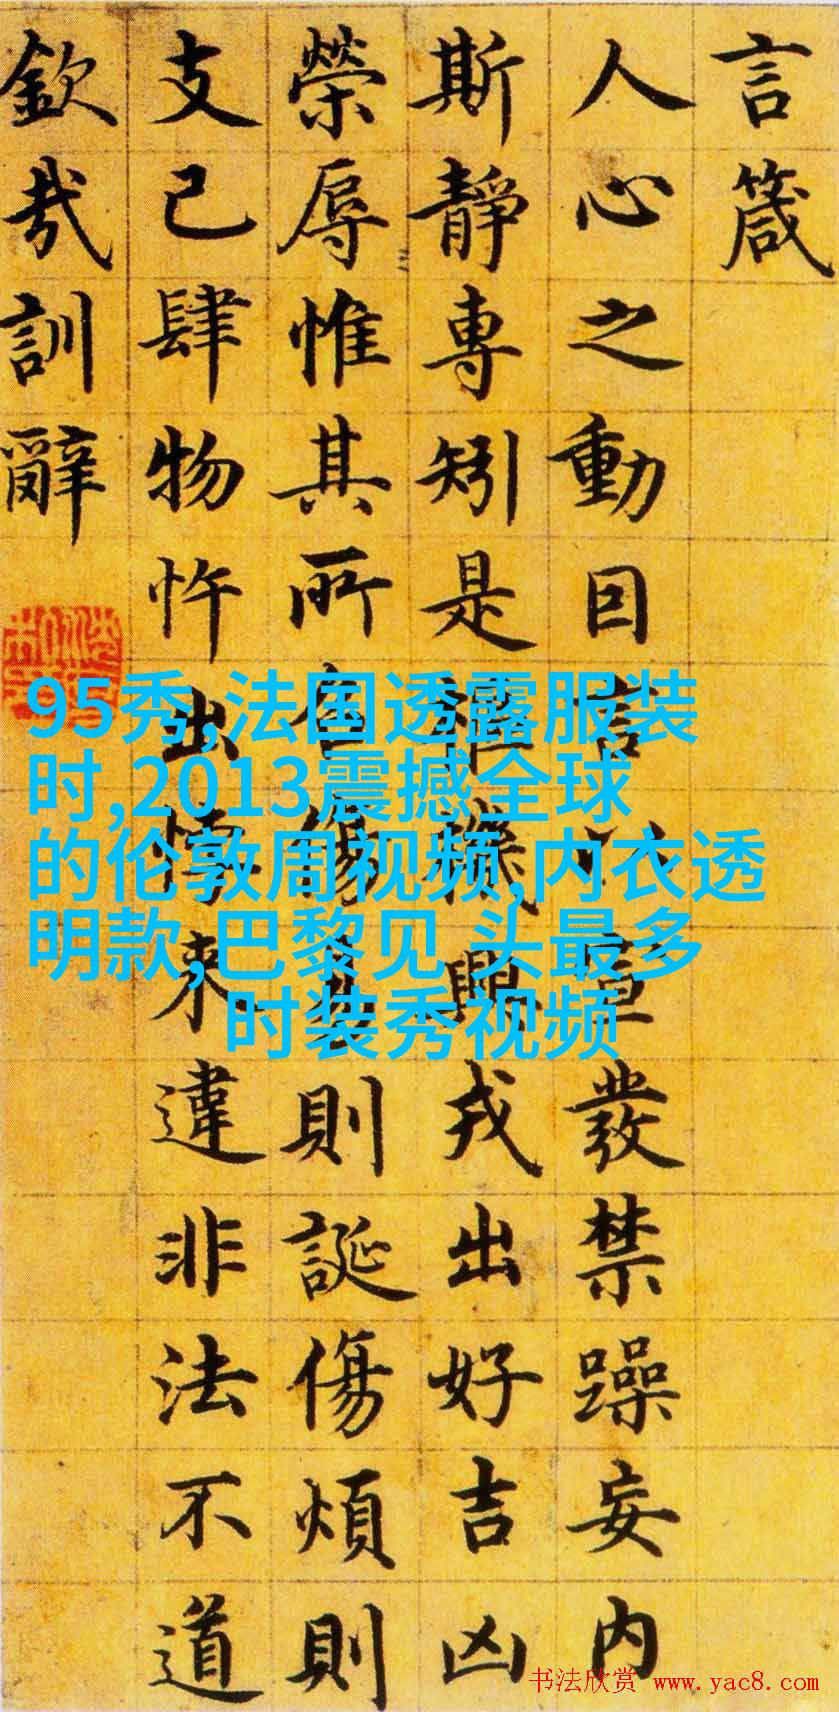 言箴
人心之動因言以宣發禁躁妄内
斯静專矧是樞機興戎出好吉凶
榮辱惟其所召傷易則誕傷煩則
支己肆物忤出悖来違非法不道
欽哉訓辭
95秀,法国透露服装
时,2013震撼全球
的伦敦周视频,内衣透
明款,巴黎见 头最多
时装秀视频
书法欣赏 www.yac8.com